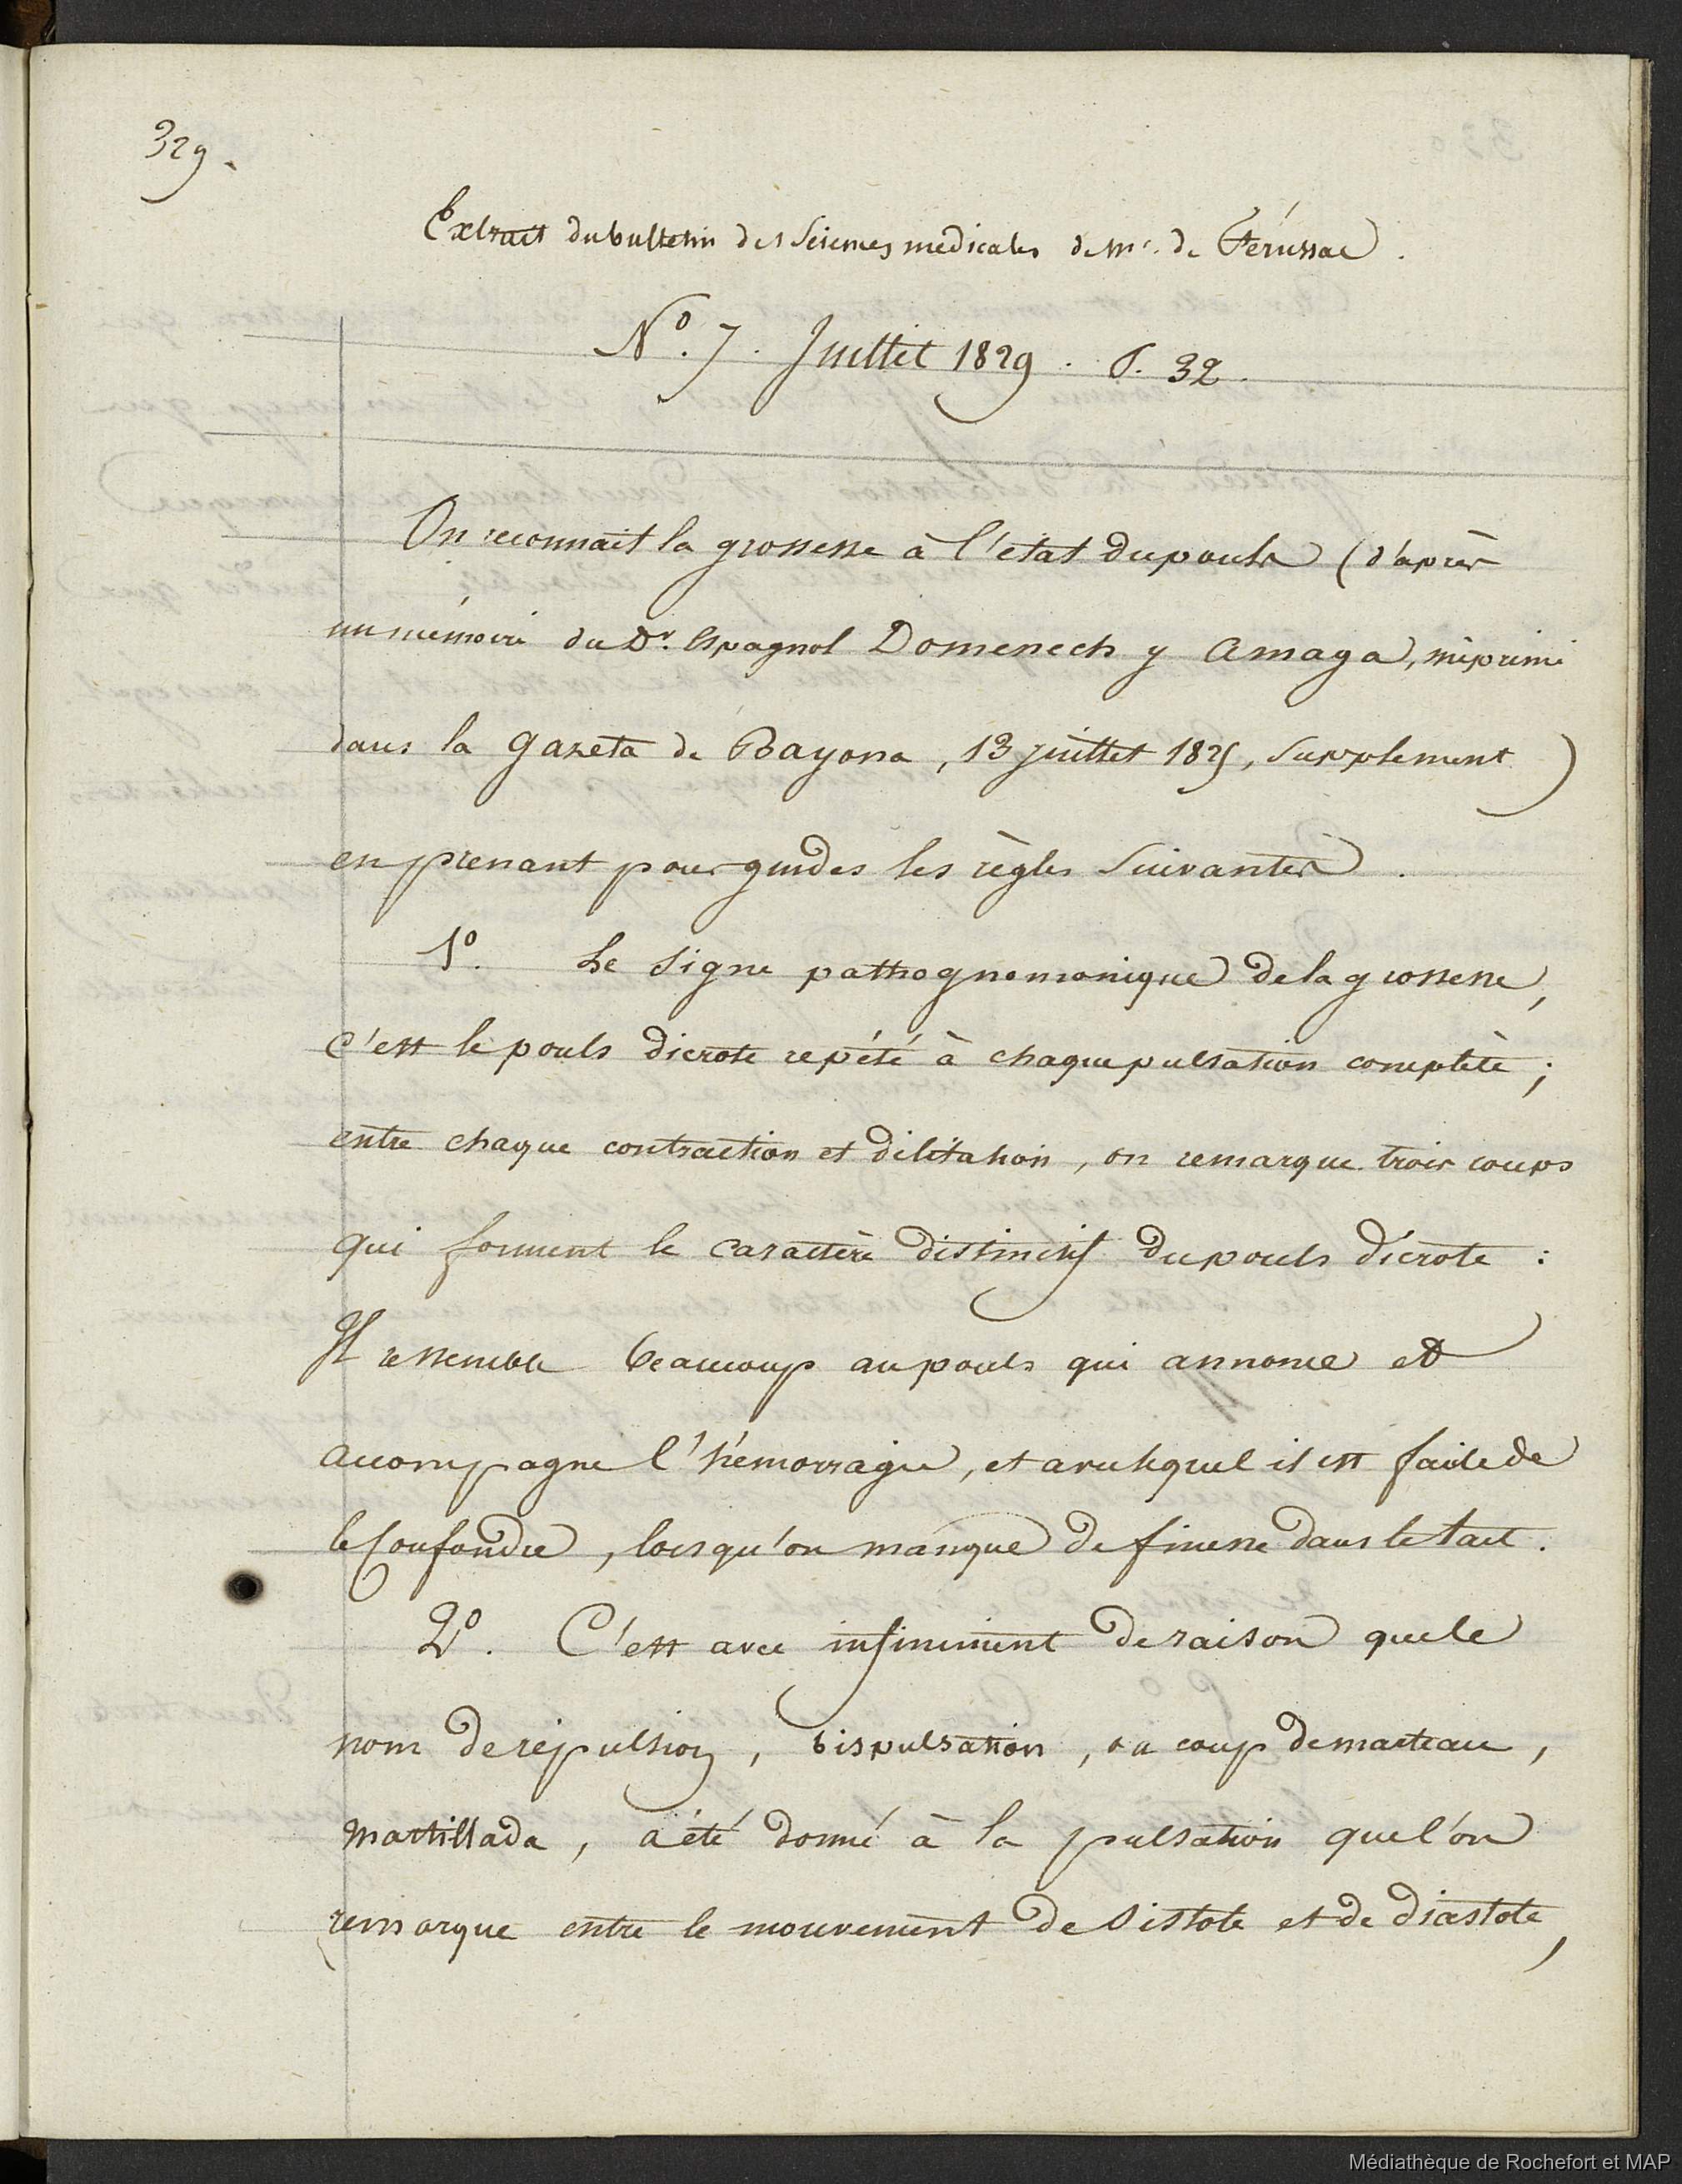 329.
Extrait du bulletin des Sciences medicales de Mr. de Férussac.
No. 7. Juillet 1829. P. 32.
On reconnait la grossesse à l'état du pouls (d'après
un mémoire du Dr. Espagnol Domenech y Amaga, imprimé
dans la gazeta de Bayona, 13 juillet 1829, Supplement)
en prenant pour guides les règles Suivantes.
1º. Le Signe pathognomonique de la grossesse,
c'est le pouls dicrote repété à chaque pulsation complète;
entre chaque contraction et dilatation, on remarque trois coups
qui forment le caractère distinctif du pouls dicrote:
Il ressemble beaucoup au pouls qui annonce et
accompagne l'hémorragie, et avec lequel il est facile de
le Confondre, lorsqu'on manque de finesse dans le tact.
2º. C'est avec infiniment de raison que le
nom de répulsion, bispulsation, ou coup de marteau,
martillada, a été donné à la pulsation que l'on
remarque entre le mouvement de Sistole et de diastole,
Médiathèque de Rochefort et MAP